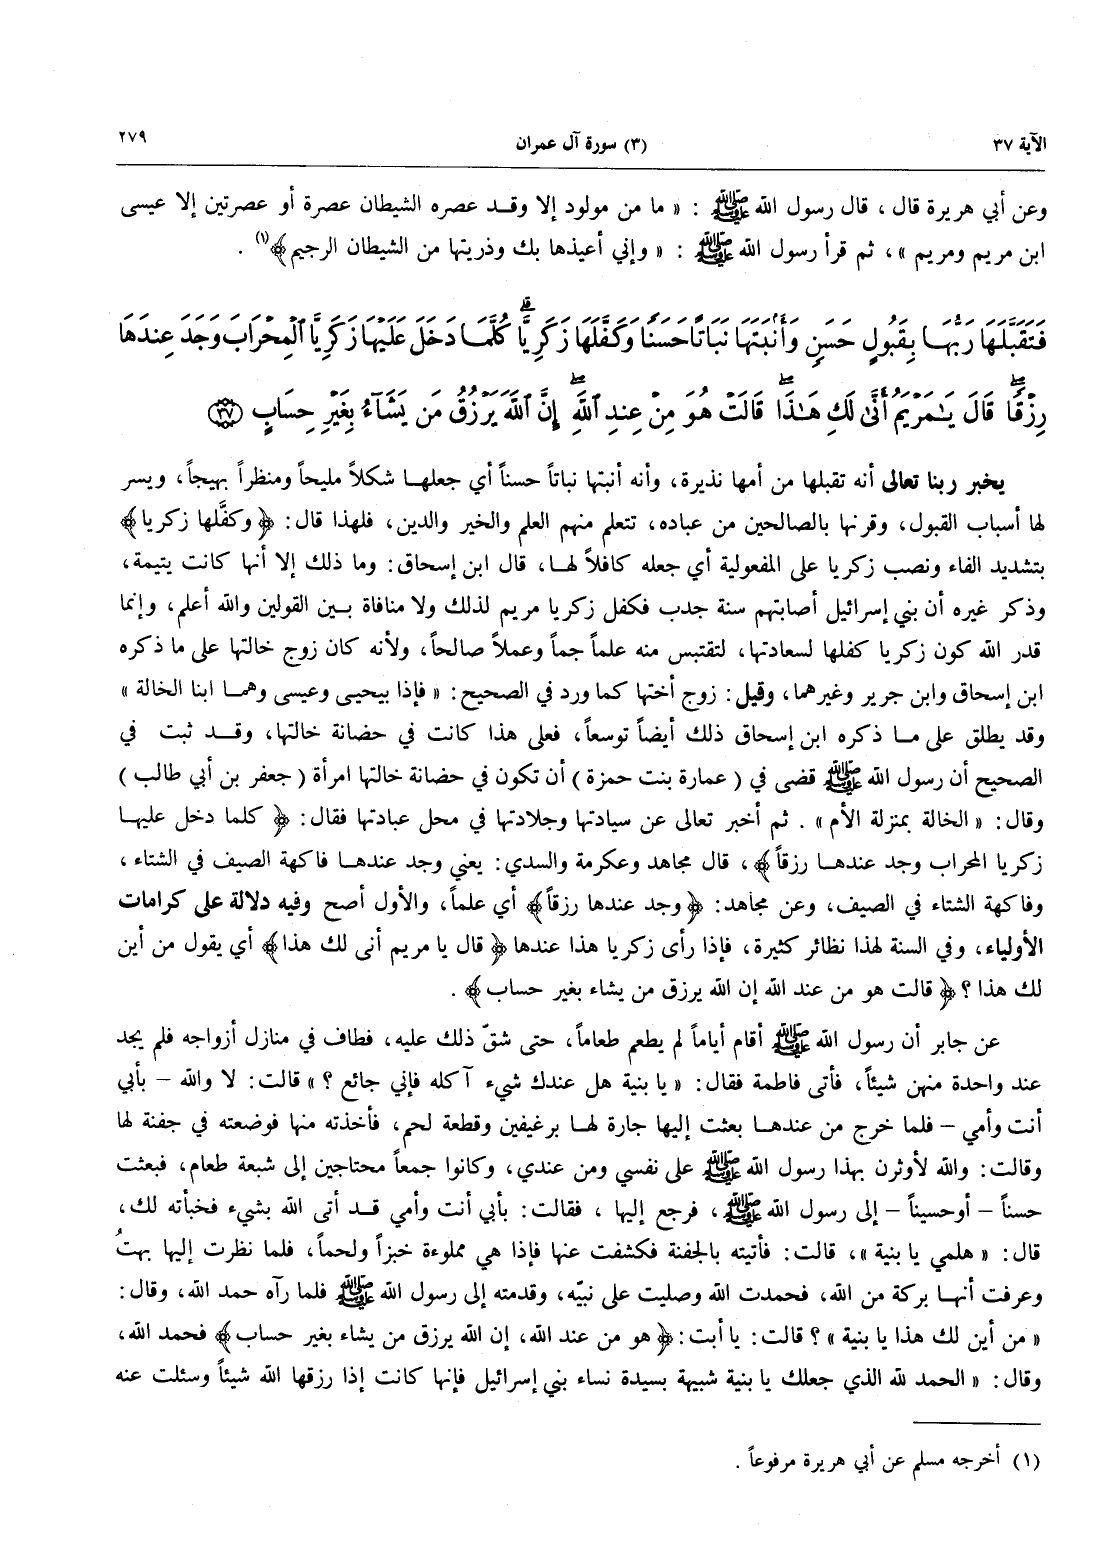 الآية ٣٧ (٣) سورة آل عمران ٢٧٩
وعن أبي هريرة قال ، قال رسول الله ﷺ : « ما من مولود إلا وقد عصره الشيطان عصرة أو عصرتين إلا عيسى
ابن مريم ومريم » ، ثم قرأ رسول الله ﷺ : « وإني أعيذها بك وذريتها من الشيطان الرجيم ﴾(١) .
فَتَقَبَّلَهَا رَبُّهَا بِقَبُولٍ حَسَنٍ وَأَنۢبَتَهَا نَبَاتًا حَسَنًا وَكَفَّلَهَا زَكَرِيَّا ۖ كُلَّمَا دَخَلَ عَلَيْهَا زَكَرِيَّا ٱلْمِحْرَابَ وَجَدَ عِندَهَا
رِزْقًا ۖ قَالَ يَـٰمَرْيَمُ أَنَّىٰ لَكِ هَـٰذَا ۖ قَالَتْ هُوَ مِنْ عِندِ ٱللَّهِ ۖ إِنَّ ٱللَّهَ يَرْزُقُ مَن يَشَآءُ بِغَيْرِ حِسَابٍ ﴿٣٧﴾
يخبر ربنا تعالى أنه تقبلها من أمها نذيرة ، وأنه أنبتها نباتاً حسناً أي جعلهـا شكلاً مليحاً ومنظراً بهيجاً ، ويسر
لها أسباب القبول ، وقرنها بالصالحين من عباده ، تتعلم منهم العلم والخير والدين ، فلهذا قال : ﴿ وكفَّلها زكريا ﴾
بتشديد الفاء ونصب زكريا على المفعولية أي جعله كافلاً لهـا ، قال ابن إسحاق : وما ذلك إلا أنها كانت يتيمة ،
وذكر غيره أن بني إسرائيل أصابتهم سنة جدب فكفل زكريا مريم لذلك ولا منافاة بـين القولين والله أعلم ، وإنما
قدر الله كون زكريا كفلها لسعادتها ، لتقتبس منه علماً جماً وعملاً صالحاً ، ولأنه كان زوج خالتها على ما ذكره
ابن إسحاق وابن جرير وغيرهما ، وقيل : زوج أختها كما ورد في الصحيح : « فإذا بيحيـى وعيسى وهمـا ابنا الخالة »
وقد يطلق على مـا ذكره ابن إسحاق ذلك أيضاً توسعاً ، فعلى هذا كانت في حضانة خالتها ، وقـد ثبت في
الصحيح أن رسول الله ﷺ قضى في ( عمارة بنت حمزة ) أن تكون في حضانة خالتها امرأة ( جعفر بن أبي طالب )
وقال : « الخالة بمنزلة الأم » . ثم أخبر تعالى عن سيادتها وجلادتها في محل عبادتها فقال : ﴿ كلما دخل عليهـا
زكريا المحراب وجد عندهـا رزقاً ﴾ ، قال مجاهد وعكرمة والسدي : يعني وجد عندهـا فاكهة الصيف في الشتاء ،
وفاكهة الشتاء في الصيف ، وعن مجاهد : ﴿ وجد عندها رزقاً ﴾ أي علماً ، والأول أصح وفيه دلالة على كرامات
الأولياء ، وفي السنة لهذا نظائر كثيرة ، فإذا رأى زكريا هذا عندها ﴿ قال يا مريم أنى لك هذا ﴾ أي يقول من أين
لك هذا ؟ ﴿ قالت هو من عند الله إن الله يرزق من يشاء بغير حساب ﴾ .
عن جابر أن رسول الله ﷺ أقام أياماً لم يطعم طعاماً ، حتى شقّ ذلك عليه ، فطاف في منازل أزواجه فلم يجد
عند واحدة منهن شيئاً ، فأتى فاطمة فقال : « يا بنية هل عندك شيء آكله فإني جائع ؟ » قالت : لا والله – بأبي
أنت وأمي – فلما خرج من عندهـا بعثت إليها جارة لهـا برغيفين وقطعة لحم ، فأخذته منها فوضعته في جفنة لها
وقالت : والله لأوثرن بهذا رسول الله ﷺ على نفسي ومن عندي ، وكانوا جمعاً محتاجين إلى شبعة طعام ، فبعثت
حسناً – أو حسيناً – إلى رسول الله ﷺ ، فرجع إليها ، فقالت : بأبي أنت وأمي قـد أتى الله بشيء فخبأته لك ،
قال : « هلمي يا بنية » ، قالت : فأتيته بالجفنة فكشفت عنها فإذا هي مملوءة خبزاً ولحماً ، فلما نظرت إليها بهتُ
وعرفت أنهـا بركة من الله ، فحمدت الله وصليت على نبيّه ، وقدمته إلى رسول الله ﷺ فلما رآه حمد الله ، وقال :
« من أين لك هذا يا بنية » ؟ قالت : يا أبت : ﴿ هو من عند الله ، إن الله يرزق من يشاء بغير حساب ﴾ فحمد الله ،
وقال : « الحمد لله الذي جعلك يا بنية شبيهة بسيدة نساء بني إسرائيل فإنها كانت إذا رزقها الله شيئاً وسئلت عنه
(١) أخرجه مسلم عن أبي هريرة مرفوعاً .